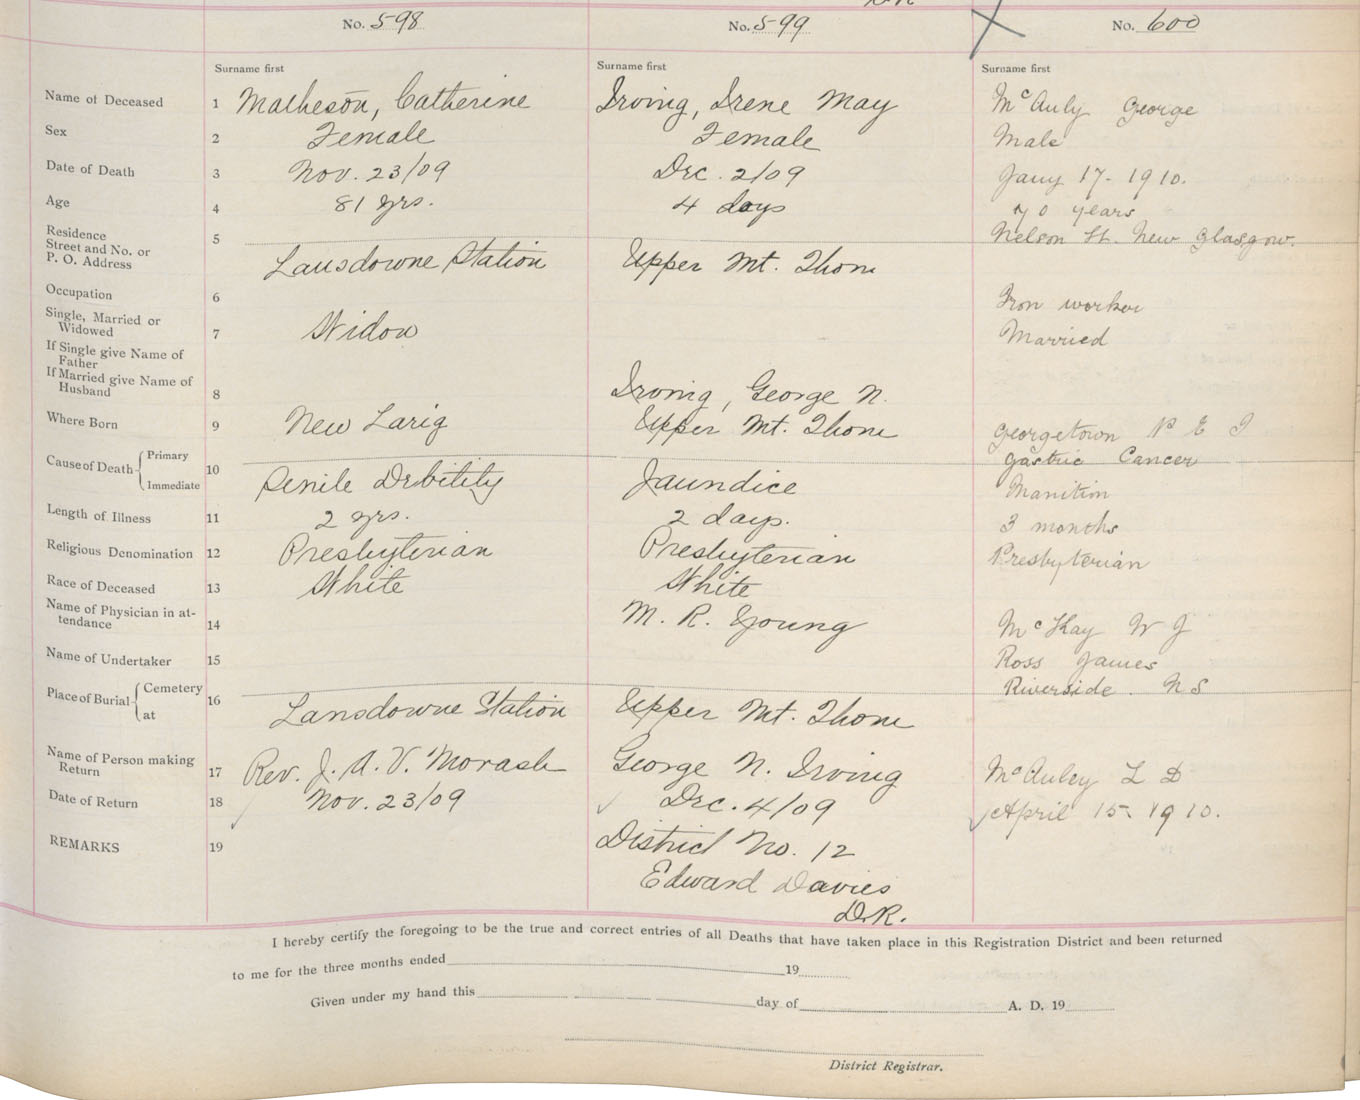 No. 598
No. 599
No. 600
Surname first
Surname first
Surname first
Name of Deceased 1 Matheson, Catherine Irving, Irene May McAuly George
Sex 2 Female Female Male
Date of Death 3 Nov. 23/09 Dec. 2/09 Jany 17 - 1910.
Age 4 81 yrs. 4 days 70 years
Residence
Street and No. or
P. O. Address 5 Lansdowne Station Upper Mt. Thom Nelson St. New Glasgow.
Occupation 6 Iron worker
Single, Married or
Widowed 7 Widow Married
If Single give Name of
Father
If Married give Name of
Husband 8 Irving, George N.
Where Born 9 New Larig Upper Mt. Thom Georgetown P E I
Cause of Death Primary 10 Gastric Cancer
Immediate Senile Debility Jaundice Inanition
Length of Illness 11 2 yrs. 2 days. 3 months
Religious Denomination 12 Presbyterian Presbyterian Presbyterian
Race of Deceased 13 White White
Name of Physician in at-
tendance 14 M. R. Young McKay W J
Name of Undertaker 15 Ross James
Place of Burial Cemetery 16 Riverside. N S
at Lansdowne Station Upper Mt. Thom
Name of Person making
Return 17 Rev. J. A. V. Morash George N. Irving McAuley L D
Date of Return 18 Nov. 23/09 Dec. 4/09 April 15 - 1910.
REMARKS 19 District No. 12
Edward Davies
D.R.
I hereby certify the foregoing to be the true and correct entries of all Deaths that have taken place in this Registration District and been returned
to me for the three months ended 19
Given under my hand this day of A. D. 19
District Registrar.